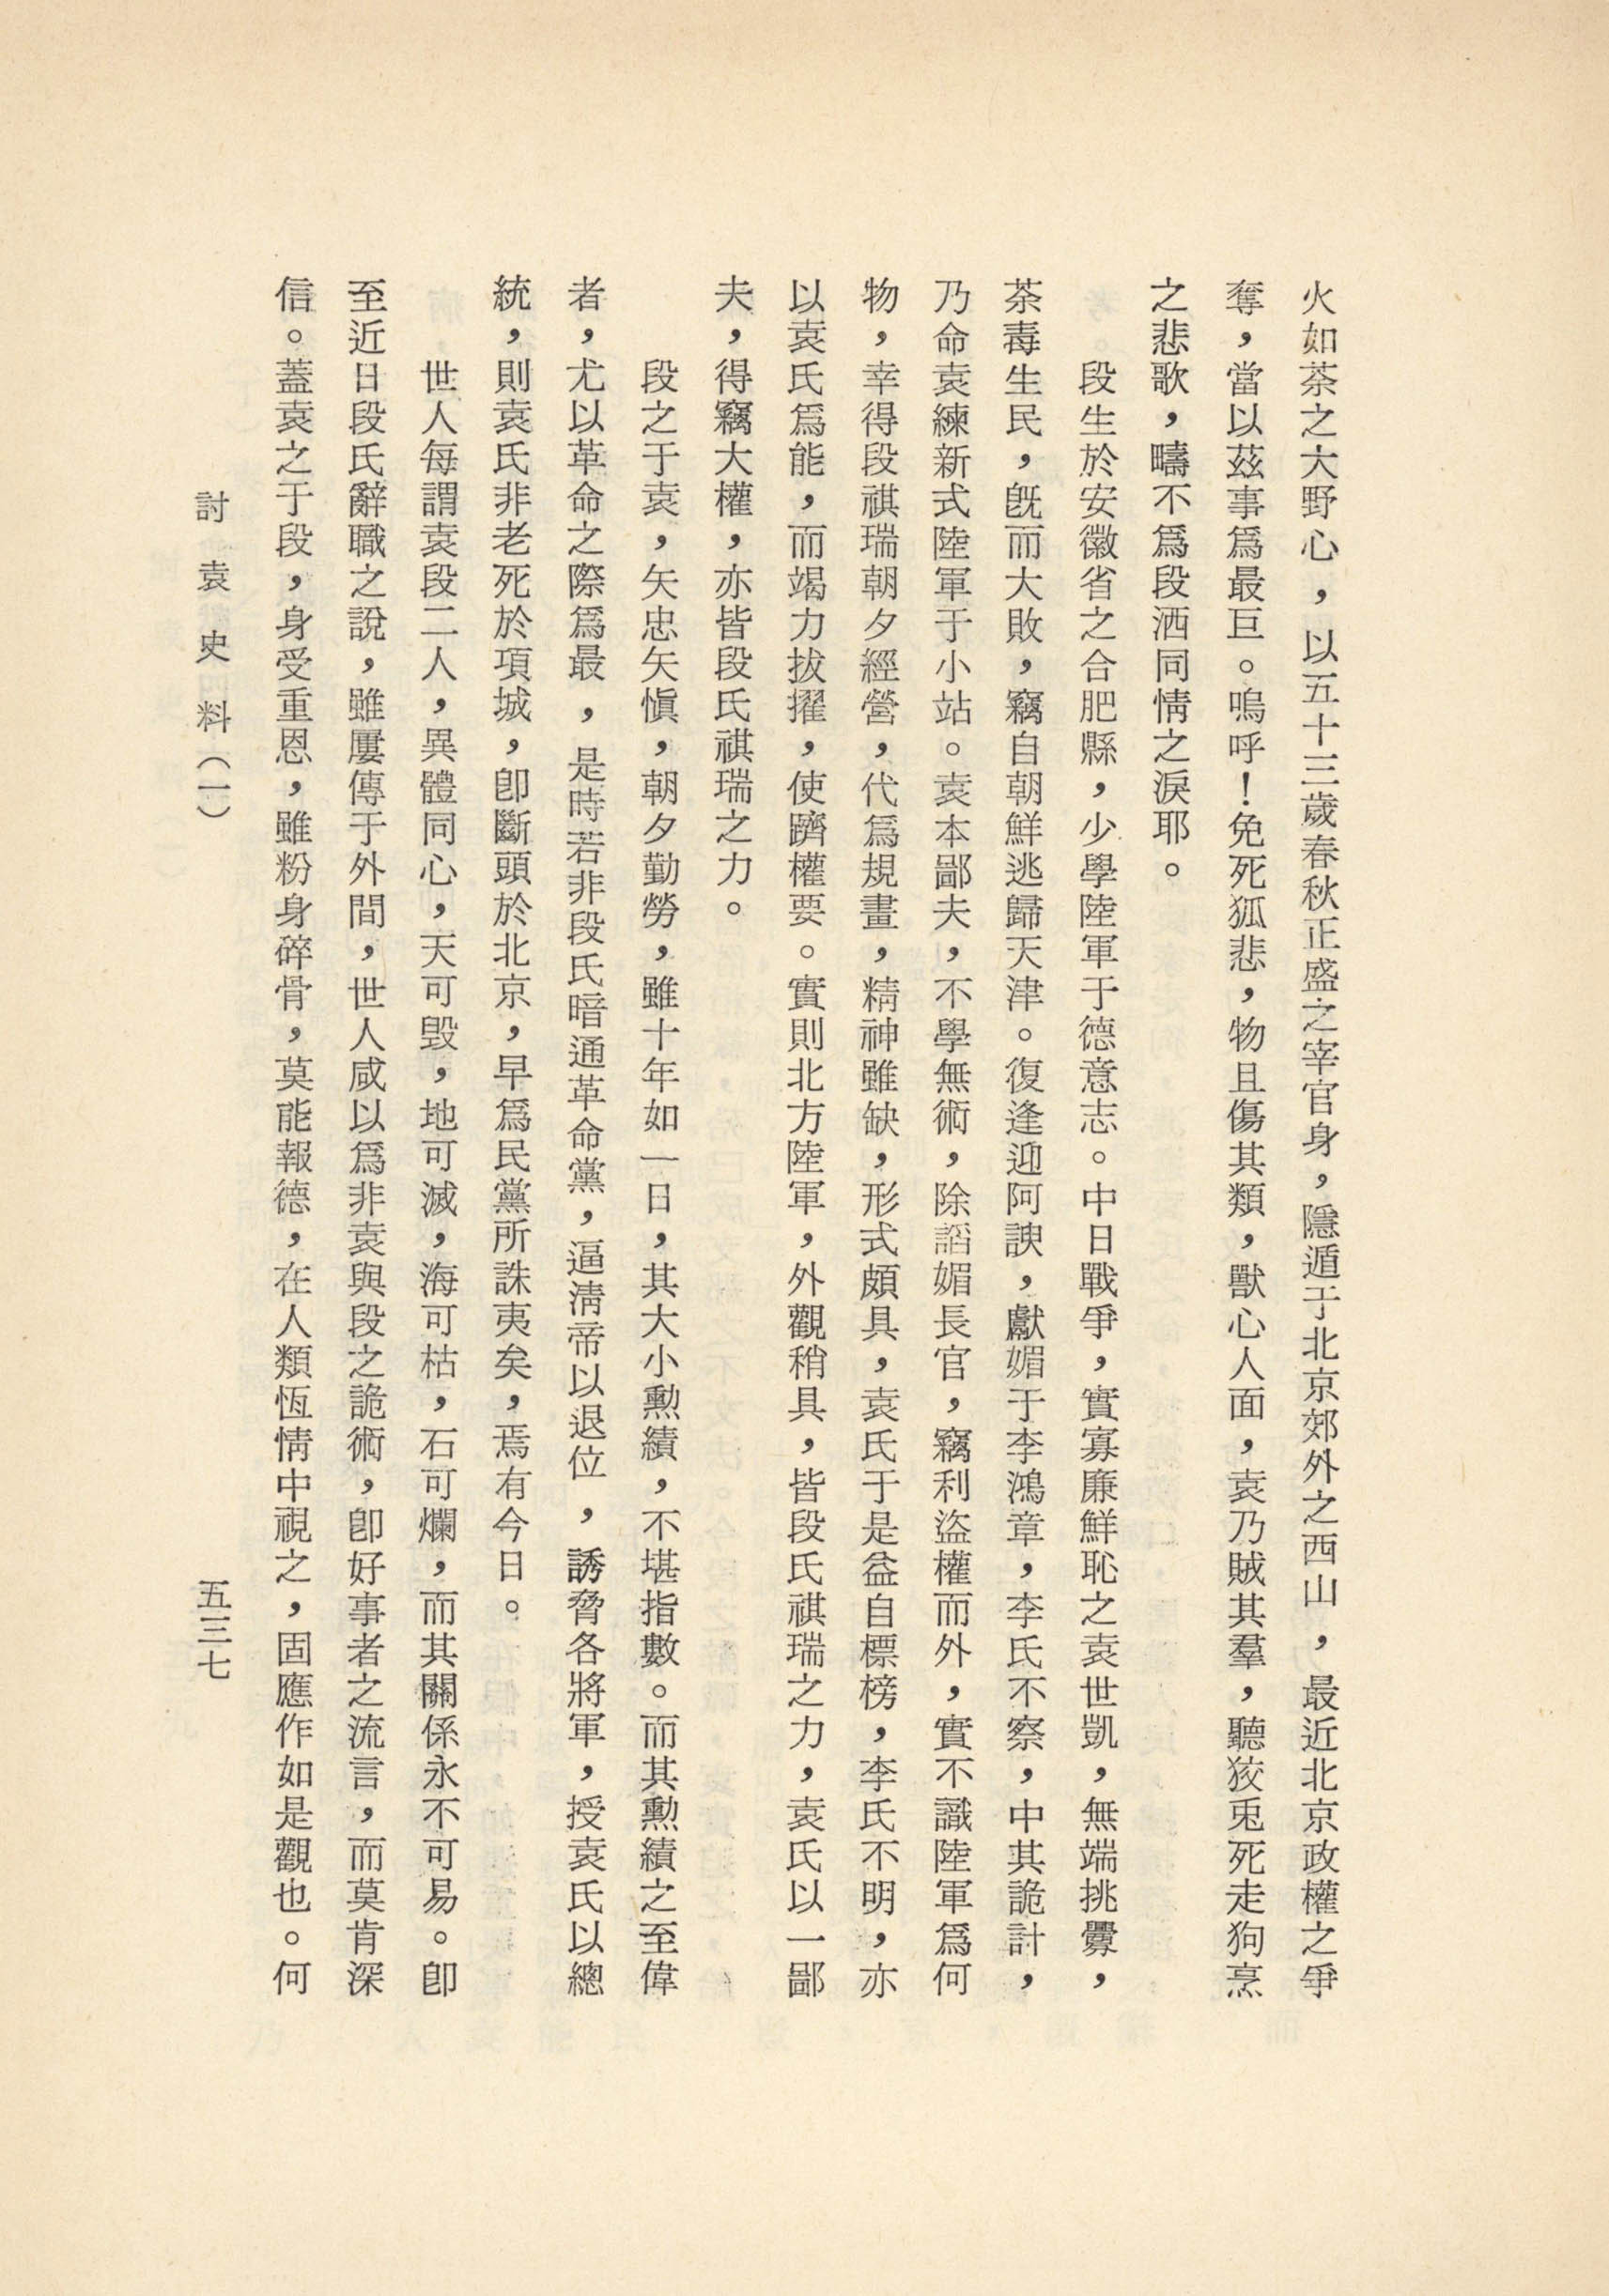 火如荼之大野心，以五十三歲春秋正盛之宰官身，隱遁于北京郊外之西山，最近北京政權之爭
奪，當以茲事爲最巨。嗚呼！免死狐悲，物且傷其類，獸心人面，袁乃賊其羣，聽狡兎死走狗烹
之悲歌，疇不爲段洒同情之淚耶。
段生於安徽省之合肥縣，少學陸軍于德意志。中日戰爭，實寡廉鮮恥之袁世凱，無端挑釁，
荼毒生民，旣而大敗，竊自朝鮮逃歸天津。復逢迎阿諛，獻媚于李鴻章，李氏不察，中其詭計，
乃命袁練新式陸軍于小站。袁本鄙夫，不學無術，除謟媚長官，竊利盜權而外，實不識陸軍爲何
物，幸得段祺瑞朝夕經營，代爲規畫，精神雖缺，形式頗具，袁氏于是益自標榜，李氏不明，亦
以袁氏爲能，而竭力拔擢，使躋權要。實則北方陸軍，外觀稍具，皆段氏祺瑞之力，袁氏以一鄙
夫，得竊大權，亦皆段氏祺瑞之力。
段之于袁，矢忠矢愼，朝夕勤勞，雖十年如一日，其大小勲績，不堪指數。而其勲績之至偉
者，尤以革命之際爲最，是時若非段氏暗通革命黨，逼淸帝以退位，誘脅各將軍，授袁氏以總
統，則袁氏非老死於項城，卽斷頭於北京，早爲民黨所誅夷矣，焉有今日。
世人每謂袁段二人，異體同心，天可毀，地可滅，海可枯，石可爛，而其關係永不可易。卽
至近日段氏辭職之說，雖屢傳于外間，世人咸以爲非袁與段之詭術，卽好事者之流言，而莫肯深
信。蓋袁之于段，身受重恩，雖粉身碎骨，莫能報德，在人類恆情中視之，固應作如是觀也。何
討袁史料（一）
五三七